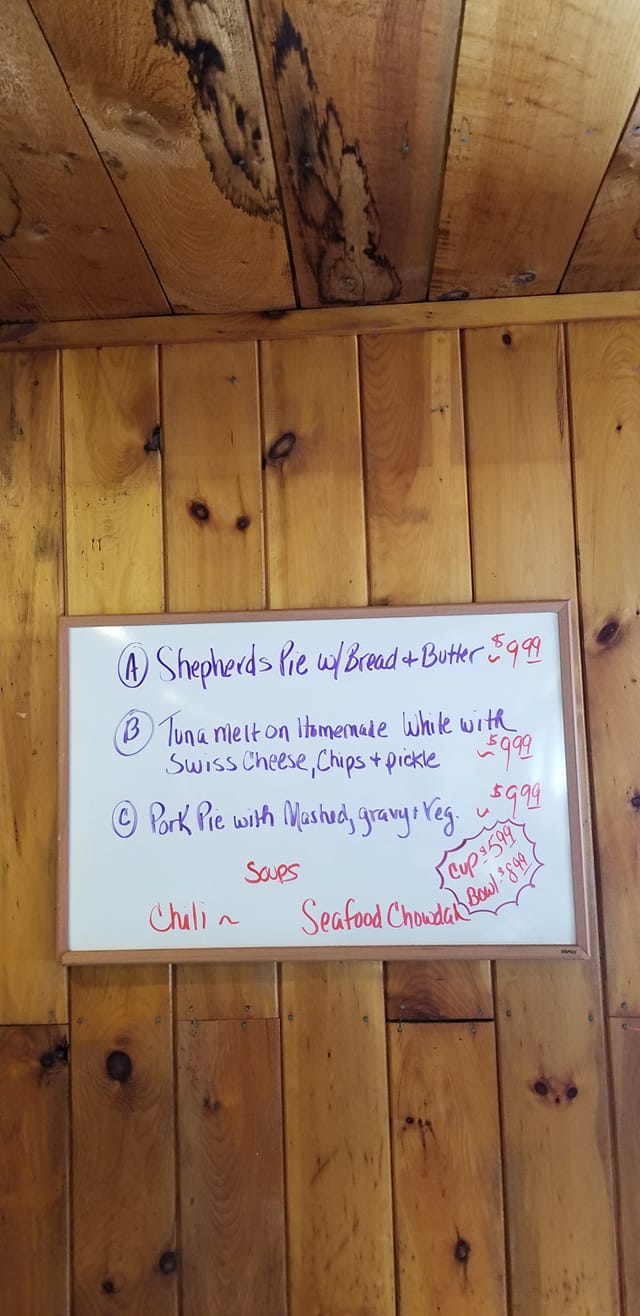 A Shepherds Pie w/ Bread + Butter ~ $9.99
B Tuna melt on Homemade White with
Swiss Cheese, Chips + pickle ~ $9.99
C Pork Pie with Mashed, gravy + Veg. ~ $9.99
Soups
Cup $5.99
Bowl $8.99
Chili ~ Seafood Chowdah
STAPLES